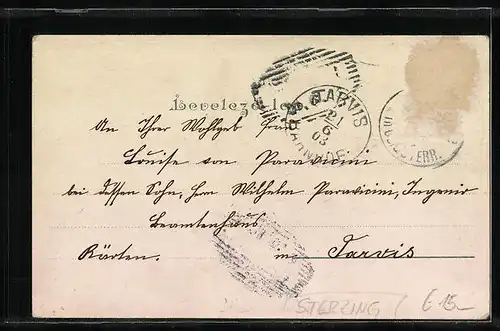 Levelező-Lap
TARVIS
21
6
03
An Ihrer Wohlgeb Frau
Louise von Paravicini
bei dessen Sohn, Herrn Wilhelm Paravicini, Ingenir
Beamtenhaus
Kärten. in Tarvis
STERZING / € 15.-